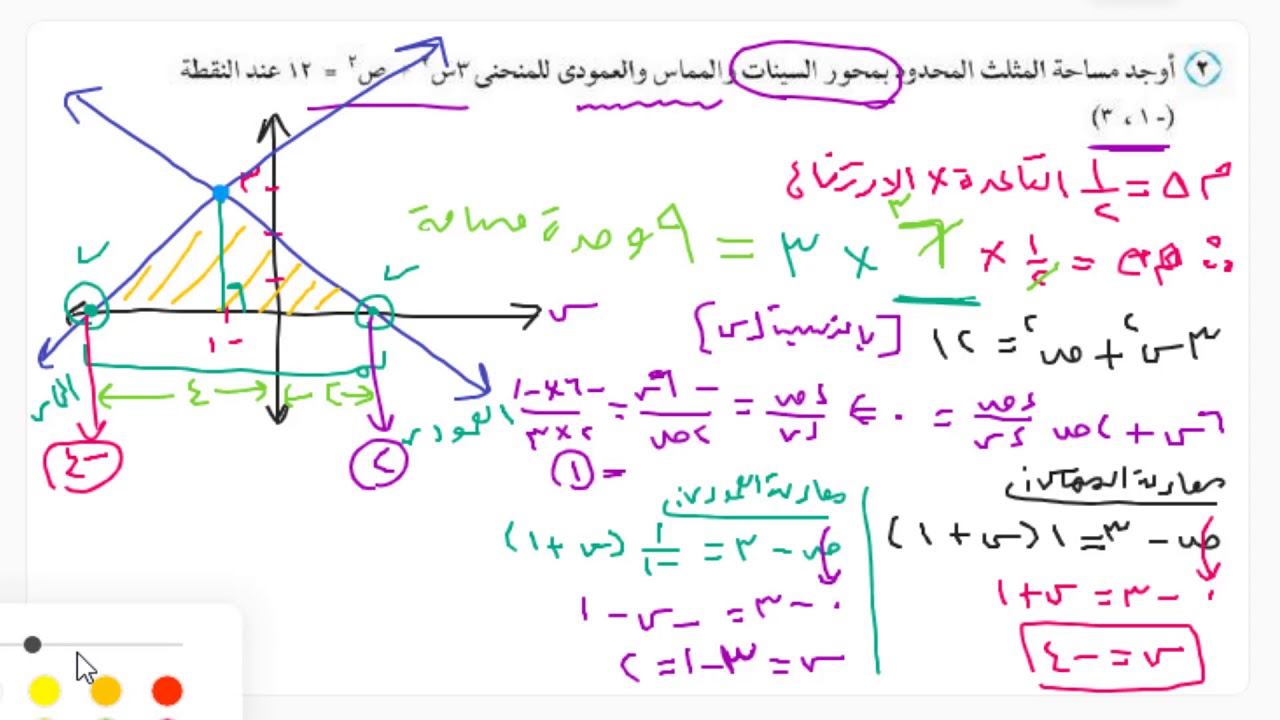 ٢ أوجد مساحة المثلث المحدود بمحور السينات والمماس والعمودى للمنحنى ٣س٢ + ص٢ = ١٢ عند النقطة
(-١ ، ٣)
م △ = ١/٢ القاعدة × الارتفاع
∴ م = ١/٢ × ٦ × ٣ = ٩ وحدة مساحة
٣س٢ + ص٢ = ١٢ [بالنسبة لـ س]
٦س + ٢ص دص/دس = ٠ ⇐ دص/دس = -٦س/٢ص = -٦×-١/٢×٣
= ١
معادلة المماس:
ص - ٣ = ١ (س + ١)
٠ - ٣ = س + ١
س = -٤
معادلة العمودى:
ص - ٣ = ١/-١ (س + ١)
٠ - ٣ = -س - ١
س = ٣ - ١ = ٢
٣
س
-١
٤
٢
المماس
العمودى
-٤
٢